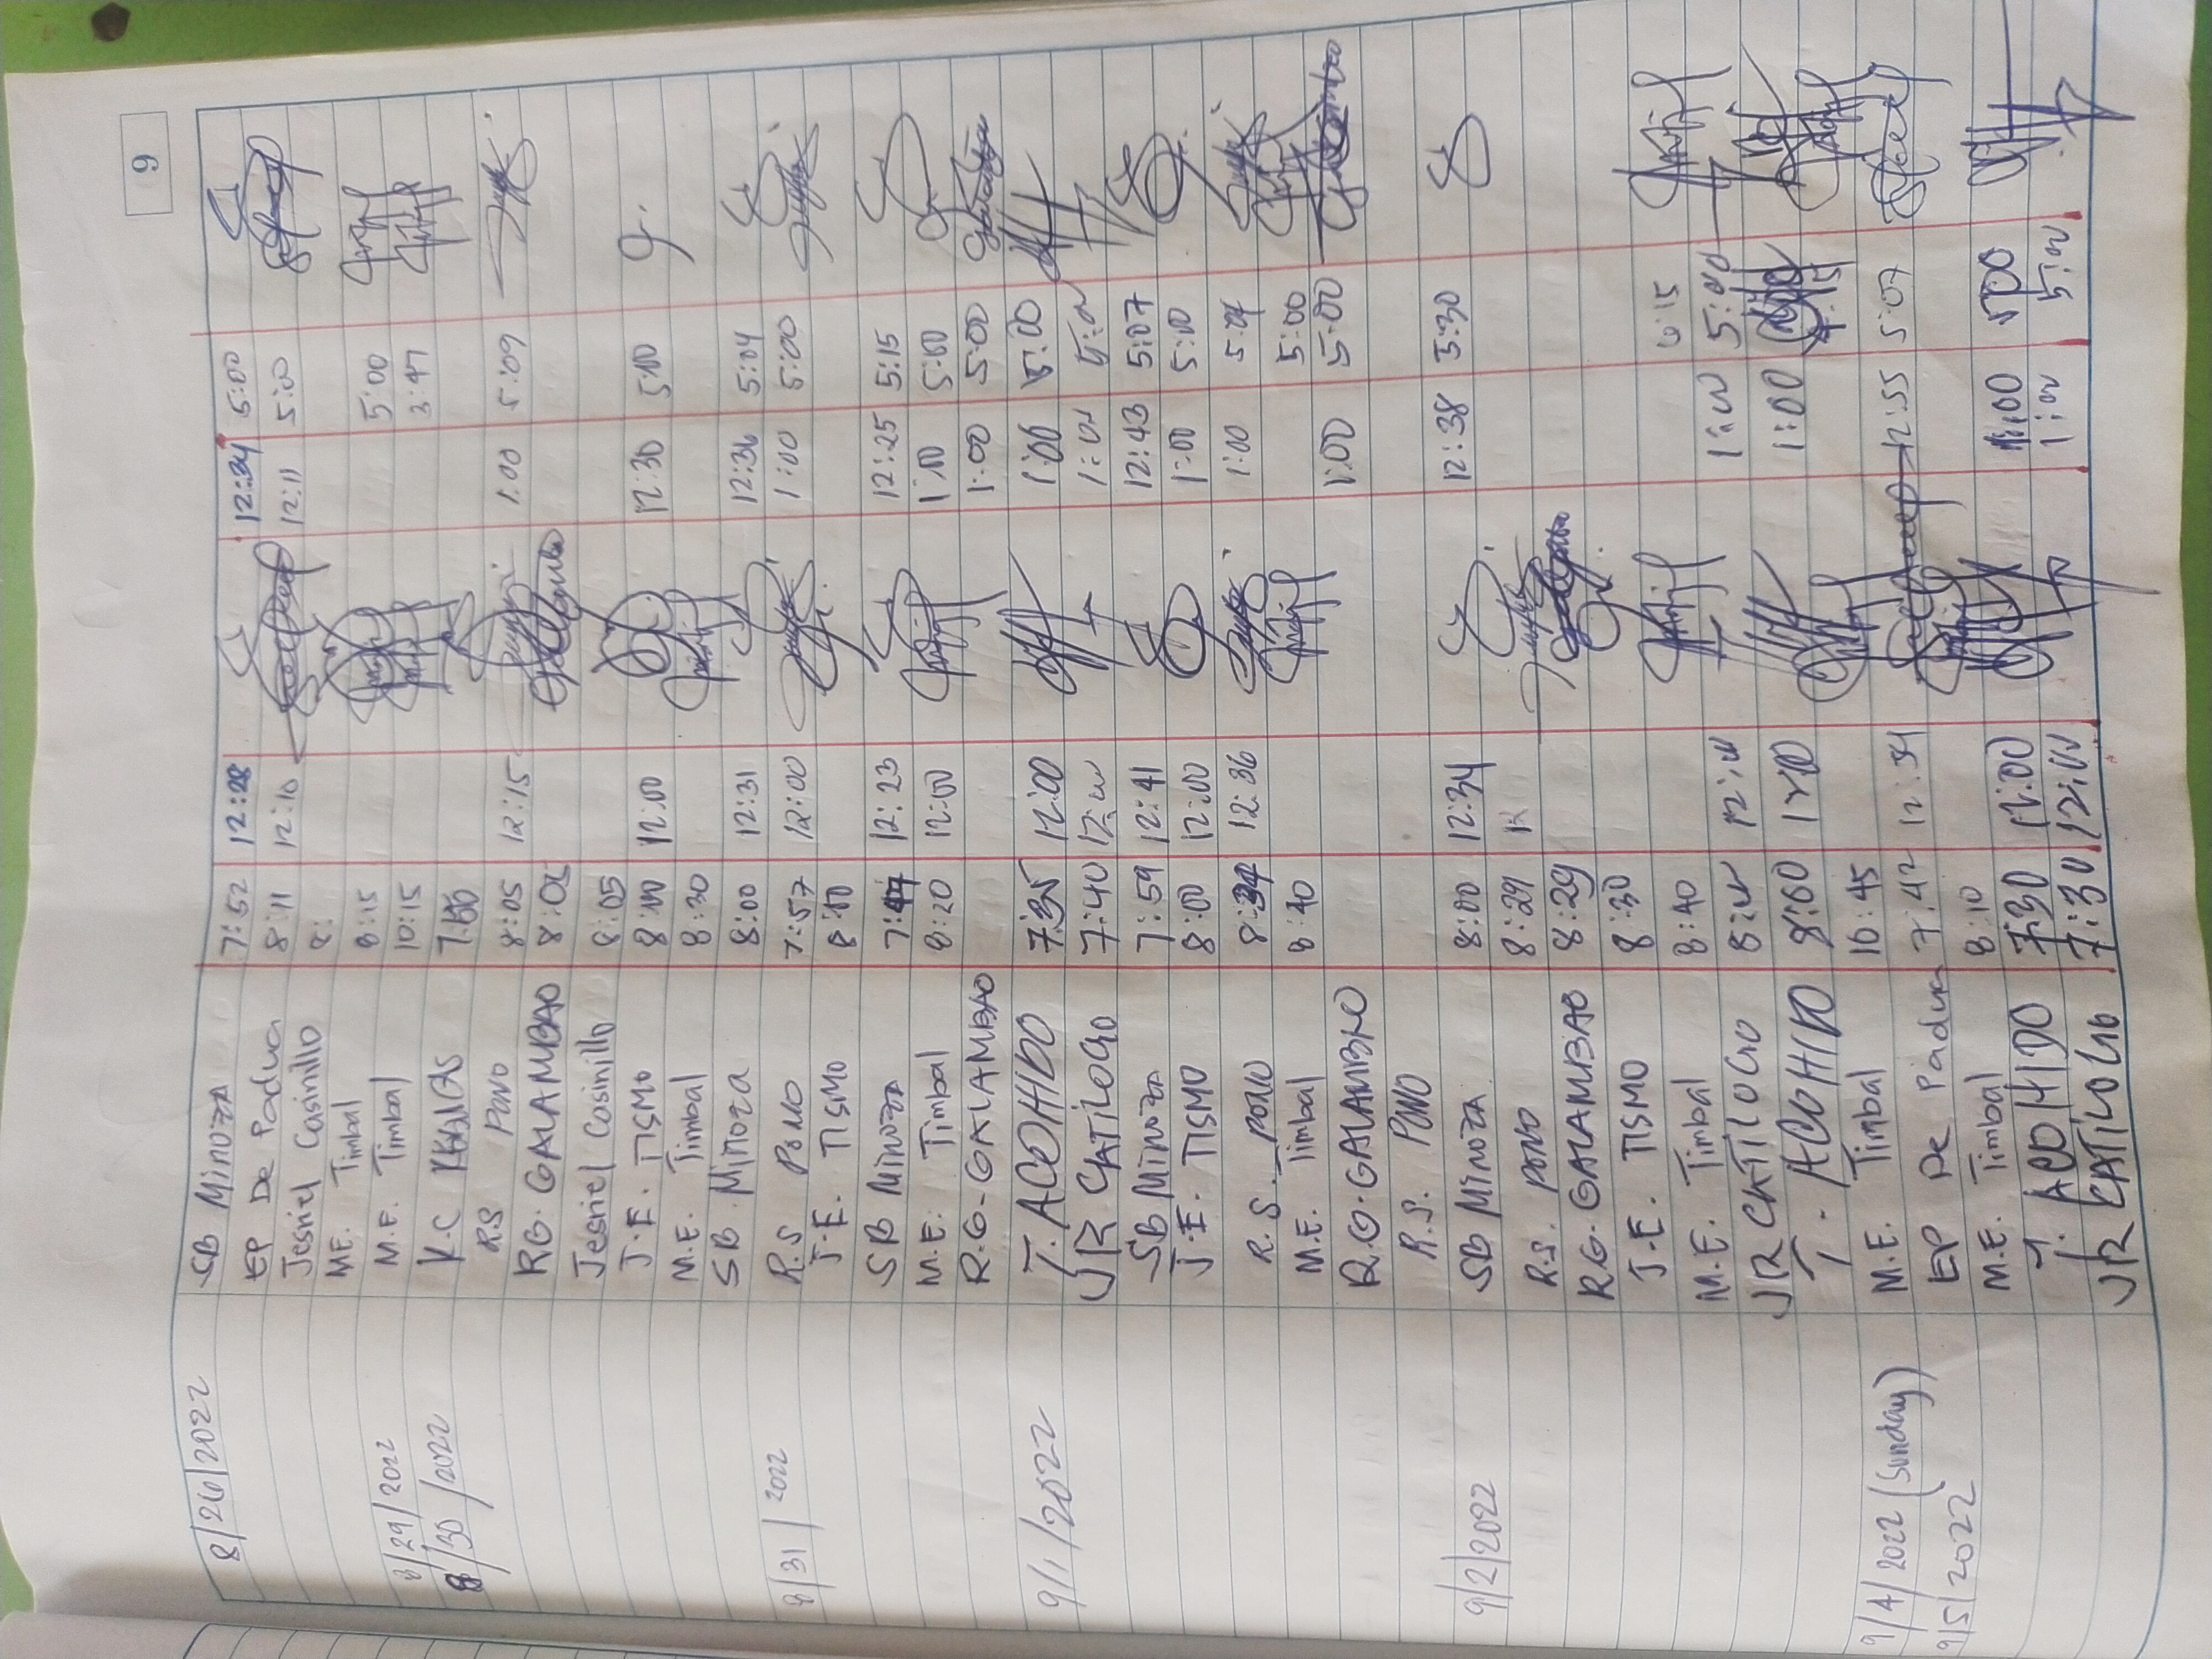 9
8/26/2022 SB Minoza 7:52 12:28 12:34 5:00
EP De Padua 8:11 12:10 12:11 5:00
Jesriel Cosinillo 8:
ME. Timbal 8:15 5:00
8/29/2022 M.E. Timbal 10:15 3:47
8/30/2022 K.C
R.S PONO 8:05 12:15 1:00 5:09
RG. GALAMBAO 8:05
Jesriel Cosinillo 8:05
J.E. TISMO 8:00 12:00 12:30 5:00
M.E. Timbal 8:30
SB. Minoza 8:00 12:31 12:36 5:04
8/31/2022 R.S PONO 7:57 12:00 1:00 5:00
J.E. TISMO 8:00
SB Minoza 12:23 12:25 5:15
M.E. Timbal 8:20 12:00 1:00 5:00
R.G. GALAMBAO 1:00 5:00
9/1/2022 J. ACOHIDO 7:35 12:00 1:00 5:00
JR CATILOGO 7:40 12:00 1:00 5:00
SB Minoza 7:59 12:41 12:43 5:07
J.E. TISMO 8:00 12:00 1:00 5:00
R.S. PONO 8:34 12:36 1:00 5:04
M.E. Timbal 8:40 5:00
R.G. GALAMBAO 1:00 5:00
R.S. PONO
9/2/2022 SB Minoza 8:00 12:34 12:38 3:30
R.S. PONO 8:29 12
RG. GALAMBAO 8:29
J.E. TISMO 8:30
M.E. Timbal 8:40 6:15
JR CATILOGO 8:00 12:00 1:00 5:00
J. ACOHIDO 8:00 1200 1:00
9/4/2022 (Sunday) M.E. Timbal 10:45 4:15
9/5/2022 EP De Padua 7:42 12:34 12:55 5:07
M.E. Timbal 8:10
J. ACOHIDO 7:30 12:00 1:00 500
JR CATILOGO 7:30 12:00 1:00 5:00